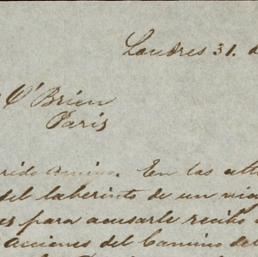 Londres 31. d
O'Brien
Paris
rido Amigo. En las alt
del laberinto de un via
para acusarle recibo
Acciones del Camino de